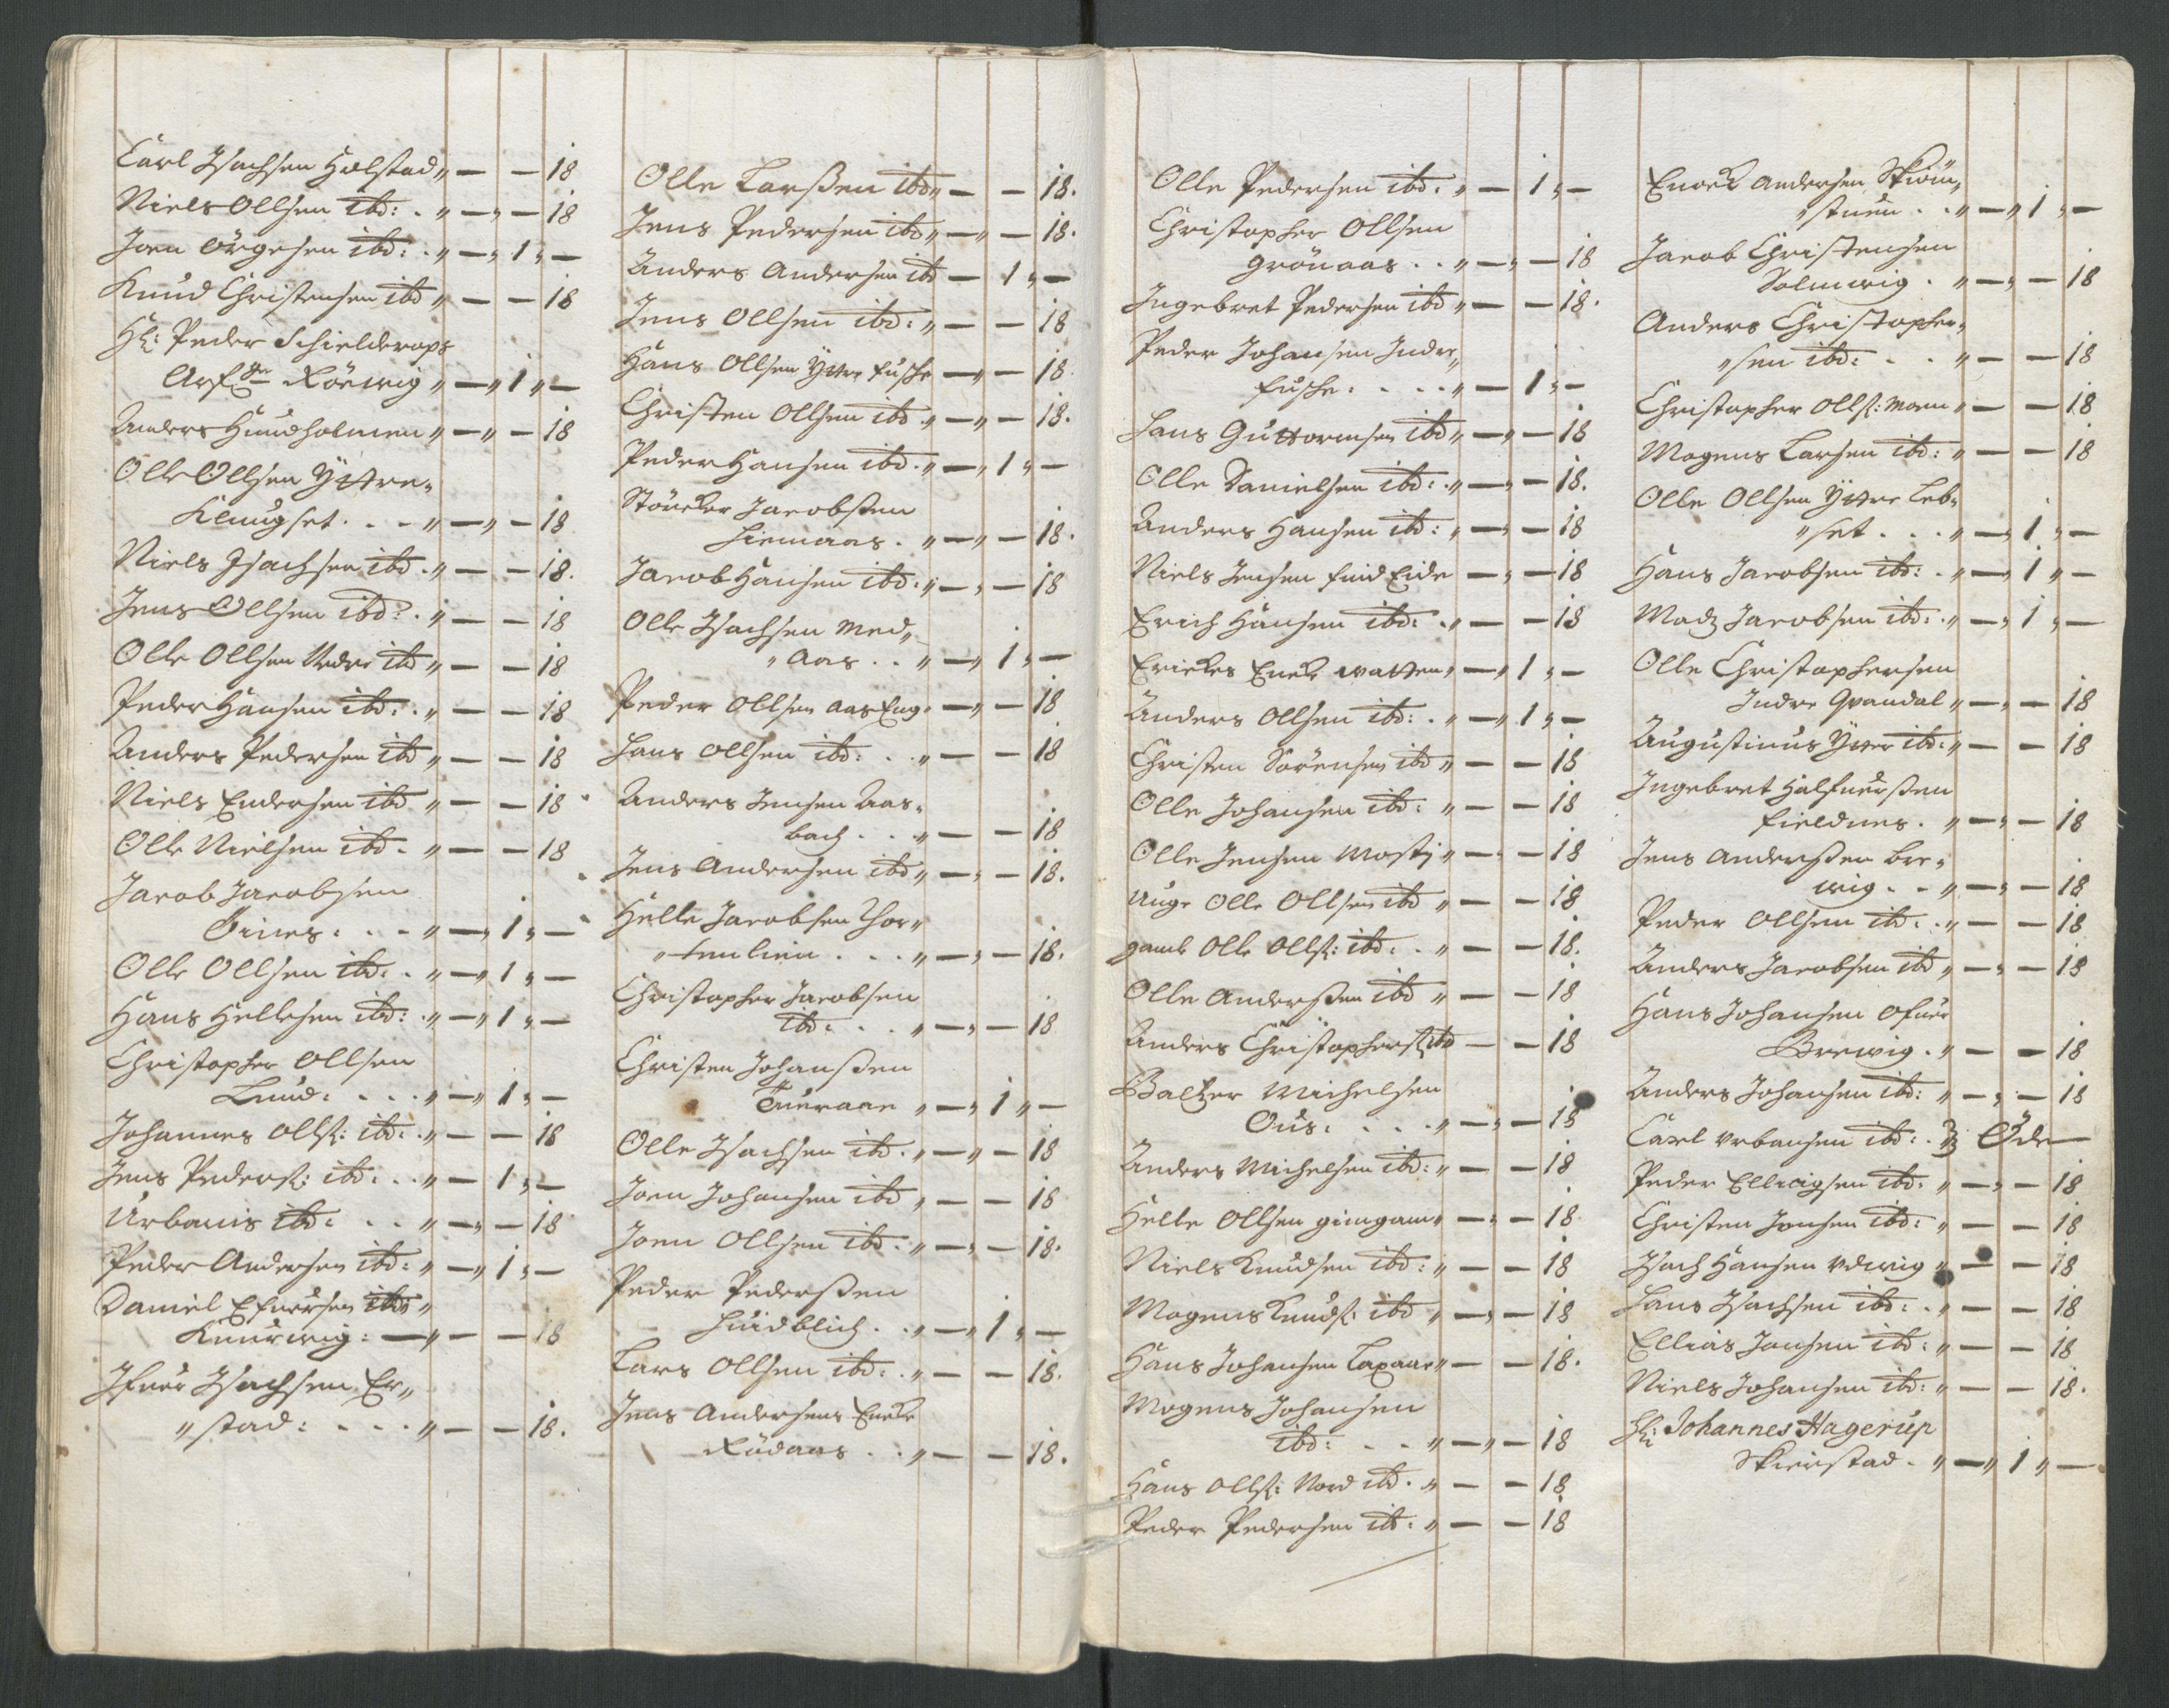 Carl Isachsen Holstad „ — — 18
Niels Ollsen ibd: . „ — „ — 18
Joen Örgesen ibd: . „ — „ 1 „ —
Knud Christensen ibd „ — — 18
Hl: Peder Schielderops
Arf Rörwig „ — „ 1 „ —
Anders Hundholmen „ — „ — 18
Olle Ollsen Yttre
Klungset . . - „ — „ — 18
Niels Isachsen ibd . „ — — 18.
Jens Ollsen ibd: . „ — — 18
Olle Ollsen Nedre ibd „ — — 18
Peder Hansen ibd: . „ — — 18
Anders Pedersen ibd „ — — 18
Niels Endersen ibd „ — — 18
Olle Nielsen ibd . „ — — 18
Jacob Jacobsen
Öines . . - „ — „ 1 „ —
Olle Ollsen ibd: . „ — „ 1 „ —
Hans Hellesen ibd: . „ — „ 1 „ —
Christopher Ollsen
Lund: . . . „ — „ 1 „ —
Johannes Ollss: ibd: . „ — — 18
Jens Peders: ibd: . . „ — 1 „ —
Urbanis ibd: . . „ — „ — 18
Peder Andersen ibd: „ — „ 1 „ —
Daniel Efuersen ibd: „
Knurwig: — „ — — 18
Ifuer Isachsen Er„
„stad: . . . „ — — 18.
Olle Larssen ibd „ — — 18.
Jens Pedersen ibd „ — „ — 18.
Anders Andersen ibd — 1 „ —
Jens Ollsen ibd: „ — — 18
Hans Ollsen Yttre fuske — „ — 18
Christen Ollsen ibd „ — „ — 18.
Peder Hansen ibd . „ — „ 1 „ —
Störcker Jacobssen
Hiemaas . „ — „ — 18.
Jacob Hansen ibd: „ — „ — 18
Olle Isachsen Med„
„Aas . . „ — „ 1 „ —
Peder Ollsen Aaseng . — „ — 18
Hans Ollsen ibd: . . „ — — 18
Anders Jensen Aas„
bach . . „ — — 18
Jens Andersen ibd „ — „ — 18.
Helle Jacobsen Thor„
„tenlien . . . „ — „ — 18.
Christopher Jacobsen
ibd: . . „ — „ — 18
Christen Johanssen
Tueraae „ — „ 1 „ —
Olle Isachsen ibd . „ — „ — 18
Joen Johansen ibd „ — — 18
Joen Ollsen ibd: „ — „ — 18.
Peder Pederssen
Huidblich . . „ — „ 1 „ —
Lars Ollsen ibd: . „ — — 18.
Jens Andersens Encke
Rödaas . . „ — — 18.
Olle Pedersen ibd: „ — 1 „ —
Christopher Ollsen
Grönaas . . „ — „ — 18
Ingebret Pedersen ibd „ — — 18.
Peder Johansen Indre„
fuske . . . . „ — 1 „ —
Hans Guttormsen ibd „ — „ — 18
Olle Danielsen ibd: . „ — „ — 18.
Anders Hansen ibd: „ — „ — 18
Niels Jensen fuid Eide — „ — 18
Erich Hansen ibd: . „ — — 18
Erickes Enck Watten „ — „ 1 „ —
Anders Ollsen ibd: . „ — „ 1 „ —
Christen Sörensen ibd „ — — 18
Olle Johansen ibd: „ — — 18
Olle Jensen Mostj „ — „ — 18
Unge Olle Ollsen ibd „ — — 18
gamle Olle Olls: ibd: . „ — — 18.
Olle Anderssen ibd „ — — 18
Anders Christophers: ibd — — 18
Baltzer Michelsen
Ous . . . . „ — „ — 18
Anders Michelsen ibd: „ — — 18
Helle Ollsen gimgam „ — „ — 18
Niels Knudsen ibd: „ — — 18
Mogens Knuds: ibd „ — „ — 18
Hans Johansen Laxaae „ — — 18.
Mogens Johansen
ibd: . . - „ — „ — 18
Hans Olls: Nord ibd . „ — — 18
Peder Pedersen ibd: „ — — 18
Enock Andersen Skiöm„
„stuen . . „ — „ 1 „ —
Jacob Christensen
Solmwig . „ — „ — 18
Anders Christopher„
„sen ibd: . . „ — — 18
Christopher Olls: Moen „ — — 18
Mogens Larsen ibd: „ — — 18
Olle Ollsen Yttre Leb„
„set . . . „ — „ 1 „ —
Hans Jacobsen ibd: . „ — „ 1 „ —
Madz Jacobsen ibd: . „ — „ 1 „ —
Olle Christophersen
Indre Qvandal „ — „ — 18
Augustinus Ytter ibd: „ — — 18
Ingebret Halfuerssen
fieldnes . „ — „ — 18
Jens Anderssen Bre„
wig . . „ — „ — 18
Peder Ollsen ibd: . „ — — 18
Anders Jacobsen ibd „ — „ — 18
Hans Johansen Ofuer
Brewig . „ — — 18
Anders Johansen ibd: „ — „ — 18
Carl Urbansen ibd: . Öde —
Peder Ellingsen ibd: „ — „ — 18
Christen Jensen ibd: „ — — 18
Isach Hansen Udwig „ — — 18
Hans Isachsen ibd: . „ — — 18
Ellias Jonsen ibd: „ — — 18
Niels Johansen ibd: „ — — 18.
Hl: Johannes Hagerup
Skierstad . „ — „ 1 „ —